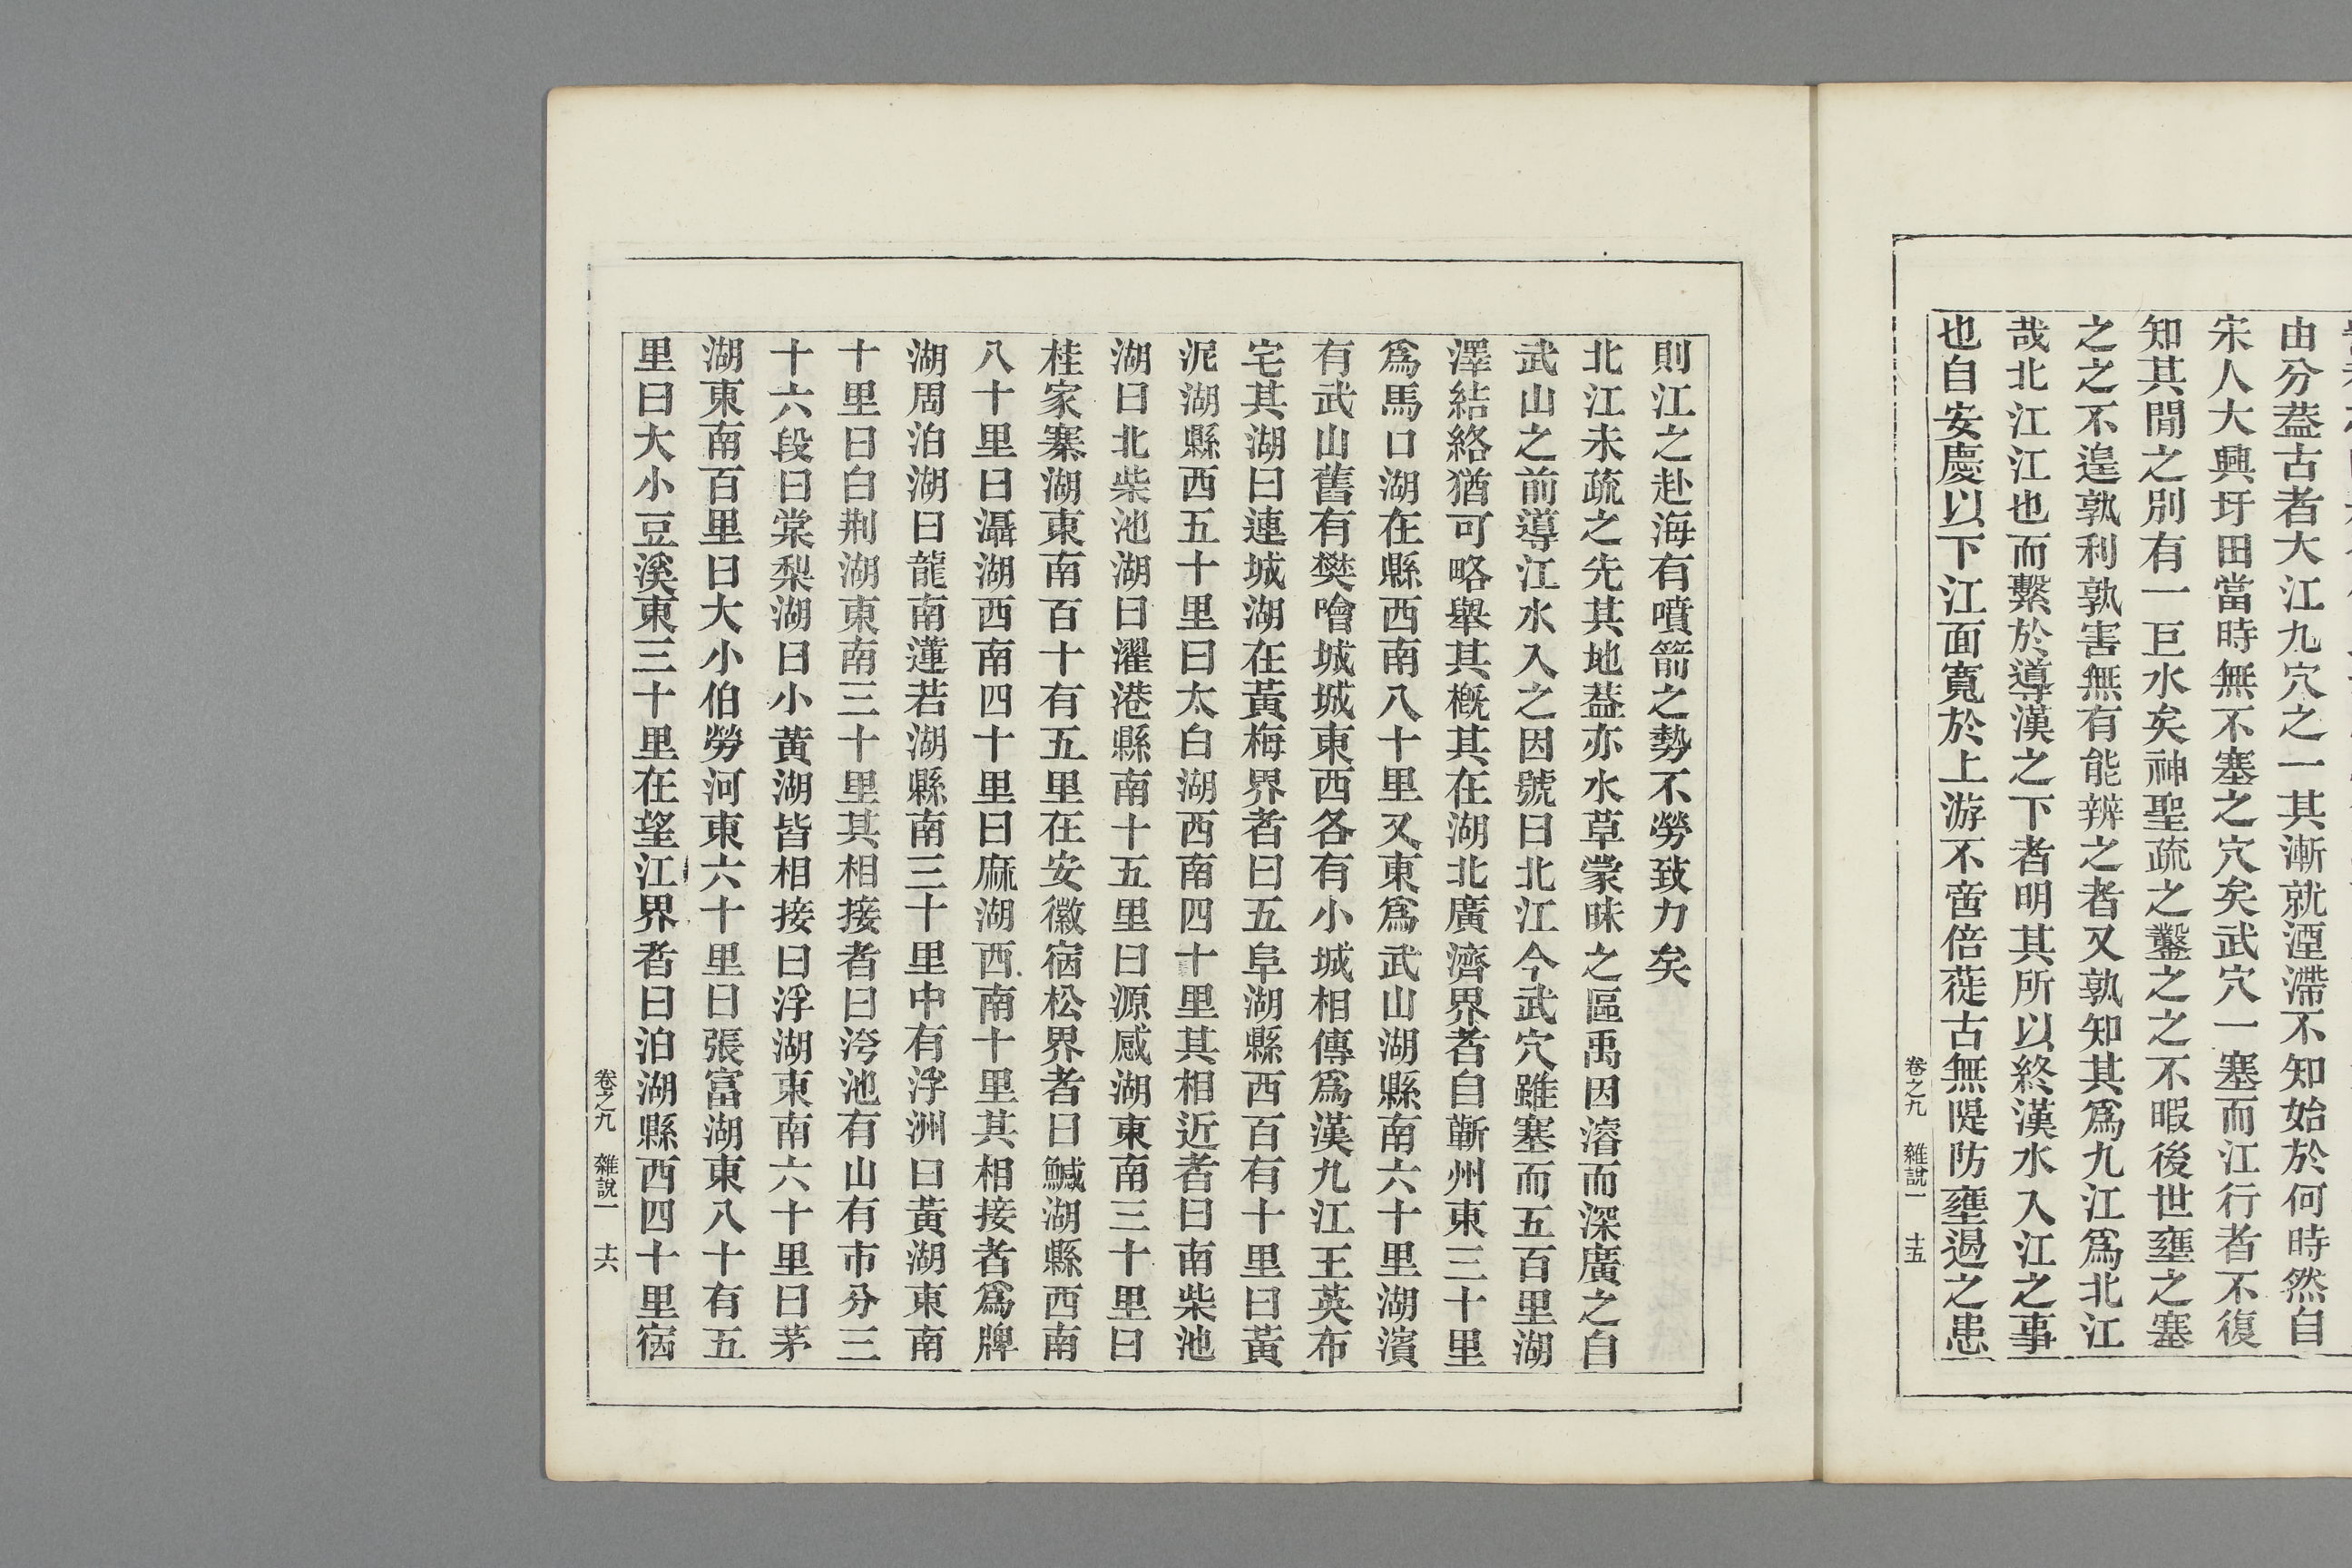 由分葢古者大江九穴之一其漸就湮滯不知始於何時然自
宋人大興圩田當時無不塞之穴矣武穴一塞而江行者不復
知其閒之別有一巨水矣神聖疏之鑿之之不暇後世壅之塞
之之不遑孰利孰害無有能辨之者又孰知其爲九江爲北江
哉北江江也而繫於導漢之下者明其所以終漢水入江之事
也自安慶以下江面寬於上游不啻倍蓰古無隄防壅遏之患
卷之九 雜說一 十五
則江之赴海有噴箭之勢不勞致力矣
北江未疏之先其地葢亦水草蒙昧之區禹因濬而深廣之自
武山之前導江水入之因號曰北江今武穴雖塞而五百里湖
澤結絡猶可略舉其槪其在湖北廣濟界者自蘄州東三十里
爲馬口湖在縣西南八十里又東爲武山湖縣南六十里湖濱
有武山舊有樊噲城城東西各有小城相傳爲漢九江王英布
宅其湖曰連城湖在黃梅界者曰五阜湖縣西百有十里曰黃
泥湖縣西五十里曰太白湖西南四十里其相近者曰南柴池
湖曰北柴池湖曰濯港縣南十五里曰源感湖東南三十里曰
桂家寨湖東南百十有五里在安徽宿松界者曰鰄湖縣西南
八十里曰灄湖西南四十里曰麻湖西南十里其相接者爲牌
湖周泊湖曰龍南蓮若湖縣南三十里中有浮洲曰黃湖東南
十里曰白荆湖東南三十里其相接者曰洿池有山有市分三
十六段曰棠梨湖曰小黃湖皆相接曰浮湖東南六十里曰茅
湖東南百里曰大小伯勞河東六十里曰張富湖東八十有五
里曰大小豆溪東三十里在望江界者曰泊湖縣西四十里宿
卷之九 雜說一 十六